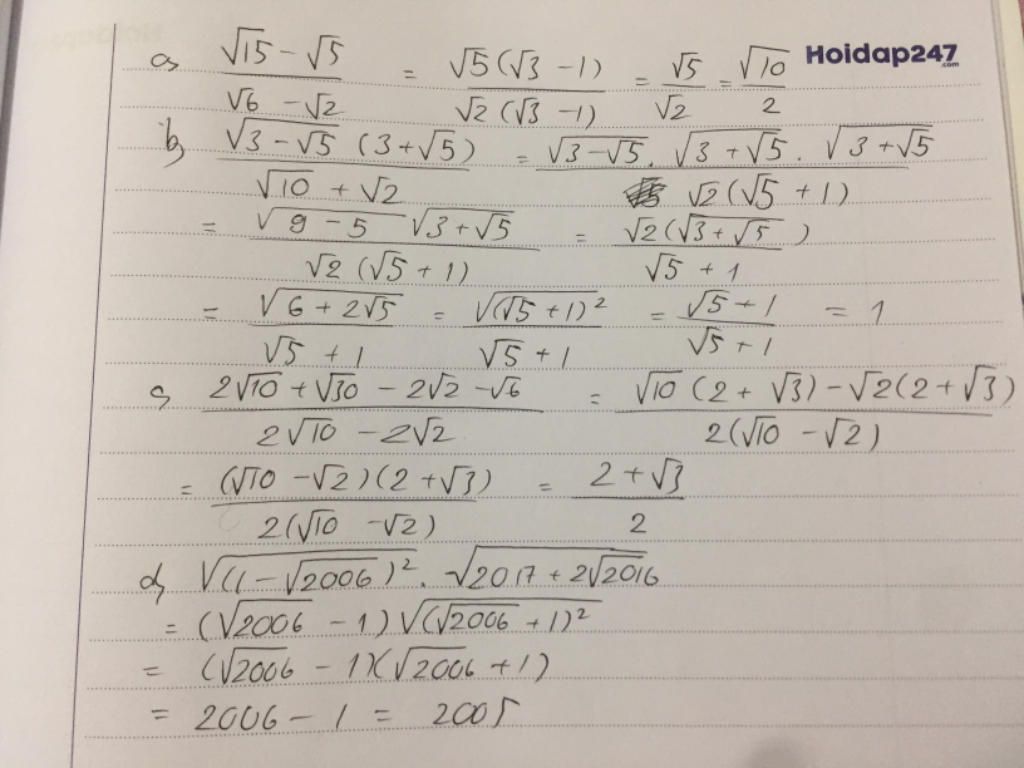 a, (√15 - √5)/(√6 - √2) = √5(√3 - 1)/√2(√3 - 1) = √5/√2 = √10/2 Hoidap247.com
b, √(3 - √5) (3 + √5)/(√10 + √2) = √(3 - √5) . √(3 + √5) . √(3 + √5)/√2(√5 + 1)
= √(9 - 5) √(3 + √5)/√2(√5 + 1) = √2(√(3 + √5))/(√5 + 1)
= √(6 + 2√5)/(√5 + 1) = √((√5 + 1)²)/(√5 + 1) = (√5 + 1)/(√5 + 1) = 1
c, (2√10 + √30 - 2√2 - √6)/(2√10 - 2√2) = (√10(2 + √3) - √2(2 + √3))/2(√10 - √2)
= (√10 - √2)(2 + √3)/2(√10 - √2) = (2 + √3)/2
d, √((1 - √2006)²) . √(2017 + 2√2016)
= (√2006 - 1) √((√2006 + 1)²)
= (√2006 - 1)(√2006 + 1)
= 2006 - 1 = 2005